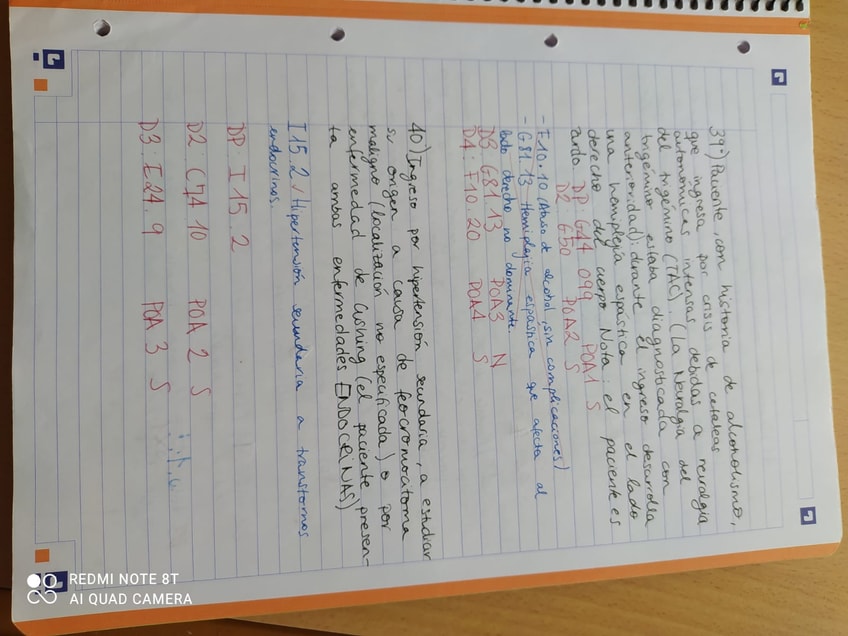 39.) Paciente, con historia de alcoholismo,
que ingresa por crisis de cefaleas
autonómicas intensas debidas a neuralgia
del trigémino (TAC). (La Neuralgia del
trigémino estaba diagnosticada con
anterioridad); durante el ingreso desarrolla
una hemiplejía espástica en el lado
derecho del cuerpo. Nota: el paciente es
zurdo DP: G44 099 POA1 S
D2: G50 POA2 S
- F10.10 (Abuso de alcohol, sin complicaciones)
- G81.13 Hemiplejia espástica que afecta al
lado derecho no dominante.
D3 G81 13 POA3 N
D4: F10.20 POA4 S
40) Ingreso por hipertensión secundaria, a estudiar
su origen a causa de feocromocitoma
maligno (localización no especificada) o por
enfermedad de Cushing (el paciente presen-
ta ambas enfermedades ENDOCRINAS)
I15.2 Hipertensión secundaria a transtornos
endocrinos.
DP: I 15. 2
D2: C74 10 POA 2 S
D3: E24. 9 POA 3 S
REDMI NOTE 8T
AI QUAD CAMERA